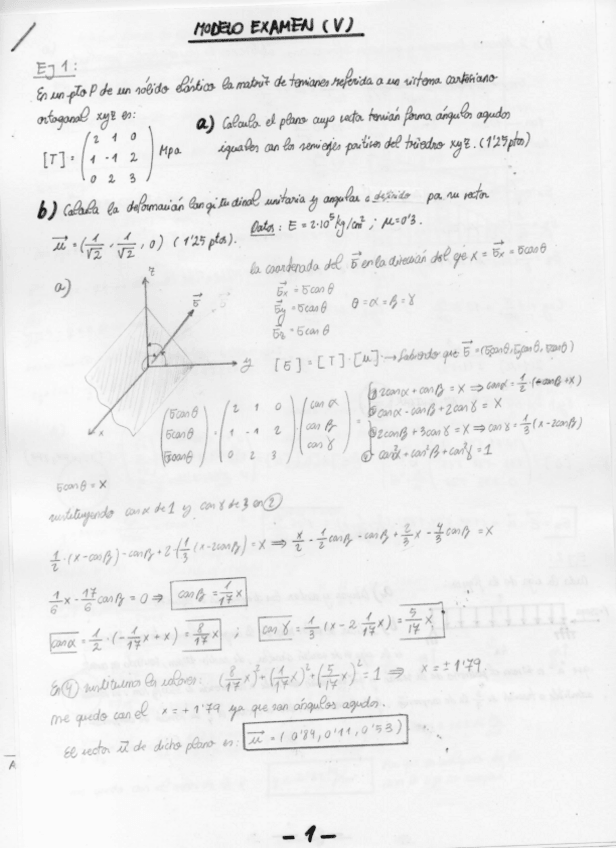 MODELO EXAMEN (V)
Ej 1:
En un pto P de un sólido elástico la matriz de tensiones referida a un sistema cartesiano
ortogonal xyz es:
[T] = ( 2 1 0
1 -1 2
0 2 3 ) Mpa
a) Calcula el plano cuyo vector tensión forma ángulos agudos
iguales con los semiejes positivos del triedro xyz. (1'25 ptos)
b) Calcula la deformación longitudinal unitaria y angular o deslizto por su vector
u⃗ = (1/√2, 1/√2, 0) (1'25 ptos). Datos: E = 2·10⁵ kg/cm²; μ = 0'3.
a)
z
σ⃗
y
x
la coordenada del σ⃗ en la dirección del eje x = σ⃗x = σcosθ
σ⃗x = σcosθ
σ⃗y = σcosθ θ = α = β = γ
σ⃗z = σcosθ
[σ] = [T]·[u] → Sabiendo que σ⃗ = (σcosθ, σcosθ, σcosθ)
(σcosθ
σcosθ
σcosθ) = ( 2 1 0
1 -1 2
0 2 3 ) · (cosα
cosβ
cosγ) =
① 2cosα + cosβ = x ⇒ cosα = 1/2·(-cosβ + x)
② cosα - cosβ + 2cosγ = x
③ 2cosβ + 3cosγ = x ⇒ cosγ = 1/3(x - 2cosβ)
④ cos²α + cos²β + cos²γ = 1
σcosθ = x
sustituyendo cosα de 1 y cosγ de 3 en ②
1/2·(x - cosβ) - cosβ + 2·(1/3(x - 2cosβ)) = x ⇒ x/2 - 1/2cosβ - cosβ + 2/3x - 4/3cosβ = x
1/6x - 17/6cosβ = 0 ⇒ cosβ = 1/17x
cosα = 1/2·(-1/17x + x) = 8/17x ; cosγ = 1/3(x - 2·1/17x) = 5/17x
En ④ sustituimos los valores: (8/17x)² + (1/17x)² + (5/17x)² = 1 ⇒ x = ±1'79
me quedo con el x = +1'79 ya que son ángulos agudos.
El vector u⃗ de dicho plano es: u⃗ = (0'84, 0'11, 0'53)
A
- 1 -